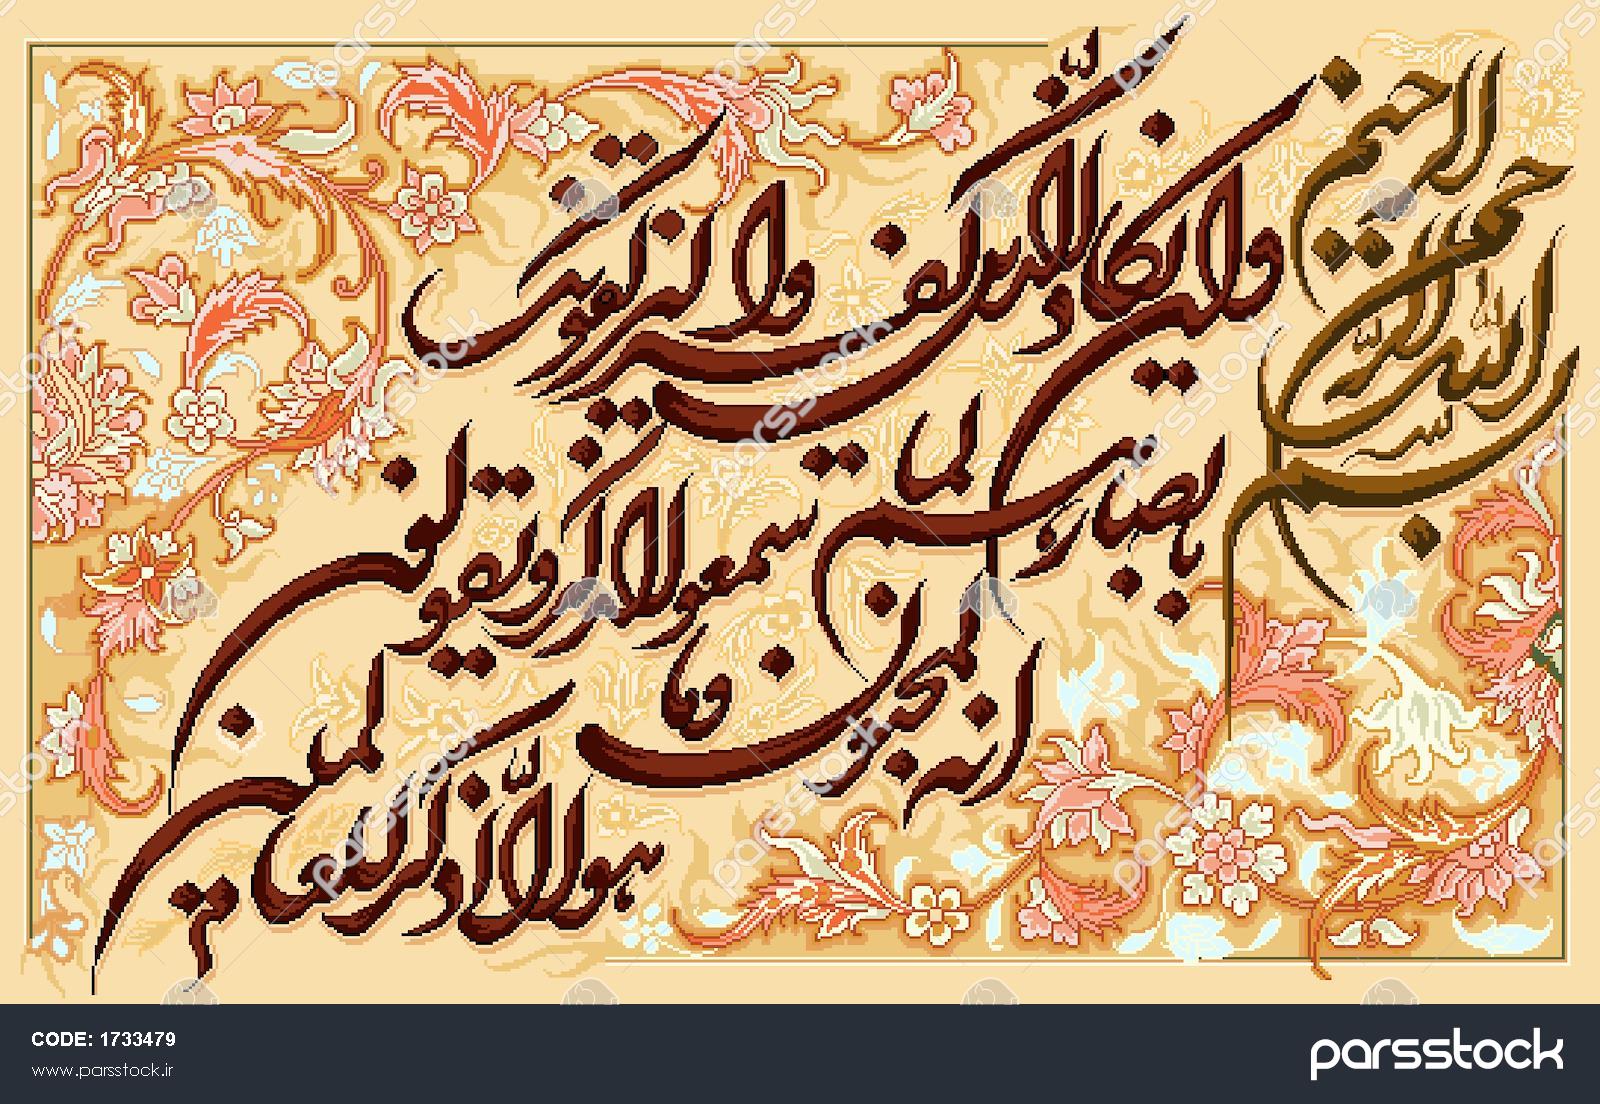 بسم الله الرحمن الرحیم
وان یکاد الذین کفروا لیزلقونک
بابصارهم لما سمعوا الذکر و یقولون
انه لمجنون وما
هو الا ذکر للعالمین
CODE: 1733479
www.parsstock.ir
parsstock